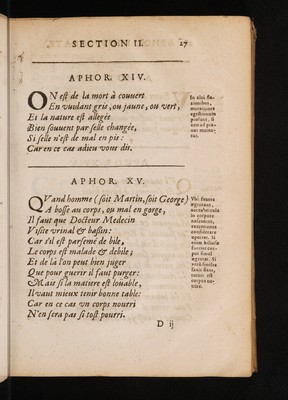 SECTION II. 27
APHOR. XIV.
ON est de la mort à couuert
En vuidant gris, ou jaune, ou vert,
Et la nature est allegée
Bien souuent par selle changée,
Si selle n'est de mal en pis:
Car en ce cas adieu vous dis.
In alui
mutationes
APHOR. XV.
QVand homme (soit Martin, soit George)
A bosse au corps, ou mal en gorge,
Il faut que Docteur Medecin
Visite vrinal & bassin:
Car s'il est parsemé de bile,
Le corps est malade & debile;
Et de là l'on peut bien juger
Que pour guerir il faut purger:
Mais si la matiere est louable,
Il vaut mieux tenir bonne table:
Car en ce cas vn corps nourri
N'en sera pas si tost pourri.
Vbi fauces
ægrotant,
in corpore
nascuntur,
excretiones
considerare
oportet. Si
enim biliosæ
fuerint cor-
pus simul
ægrotat. Si
sanis sient,
tutum est
corpus nu-
trire.
D ij